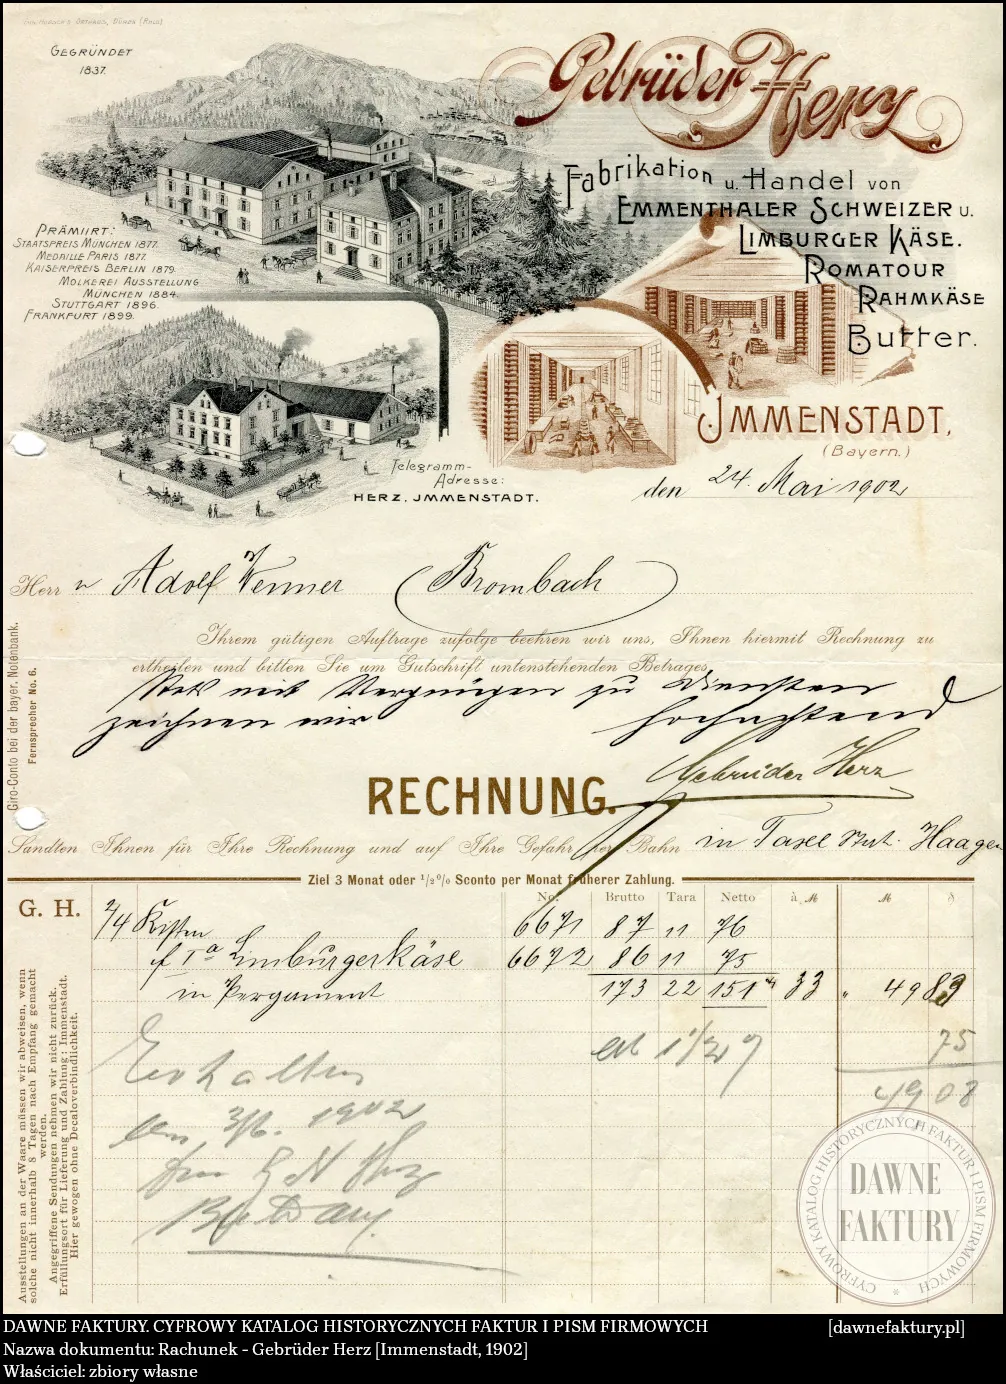 GEGRÜNDET
1837.
Gebrüder Herz
Fabrikation u. Handel von
EMMENTHALER SCHWEIZER u.
LIMBURGER KÄSE.
ROMATOUR
RAHMKÄSE
Butter.
PRÄMIIRT:
STAATSPREIS MÜNCHEN 1877.
MEDAILLE PARIS 1877.
KAISERPREIS BERLIN 1879.
MOLKEREI AUSSTELLUNG
MÜNCHEN 1884.
STUTTGART 1896.
FRANKFURT 1899.
JMMENSTADT,
(Bayern.)
Telegramm-
Adresse:
HERZ. JMMENSTADT.
den 24. Mai 1902
Herr n Adolf Wenner Brombach
Ihrem gütigen Auftrage zufolge beehren wir uns, Ihnen hiermit Rechnung zu
ertheilen und bitten Sie um Gutschrift untenstehenden Betrages.
Stets mit Vergnügen zu Diensten
zeichnen wir hochachtend
Gebrüder Herz
Giro-Conto bei der bayer. Notenbank.
Fernsprecher No. 6.
RECHNUNG.
Sandten Ihnen für Ihre Rechnung und auf Ihre Gefahr per Bahn in Haagen
Ziel 3 Monat oder 1/2% Sconto per Monat früherer Zahlung.
G. H.
No. Brutto Tara Netto à M M ₰
2/4 Kisten 6671 87 11 76
f Ia Limburgerkäse 6672 86 11 75
in Pergament 173 22 151 33 " 49 83
ab 1 1/2 % 75
49 08
Erhalten
den 3/6. 1902
Ausstellungen an der Waare müssen wir abweisen, wenn
solche nicht innerhalb 8 Tagen nach Empfang gemacht
werden.
Angegriffene Sendungen nehmen wir nicht zurück.
Erfüllungsort für Lieferung und Zahlung: Immenstadt.
Hier gewogen ohne Decaloverbindlichkeit.
CYFROWY KATALOG HISTORYCZNYCH FAKTUR I PISM FIRMOWYCH
DAWNE
FAKTURY
DAWNE FAKTURY. CYFROWY KATALOG HISTORYCZNYCH FAKTUR I PISM FIRMOWYCH [dawnefaktury.pl]
Nazwa dokumentu: Rachunek - Gebrüder Herz [Immenstadt, 1902]
Właściciel: zbiory własne